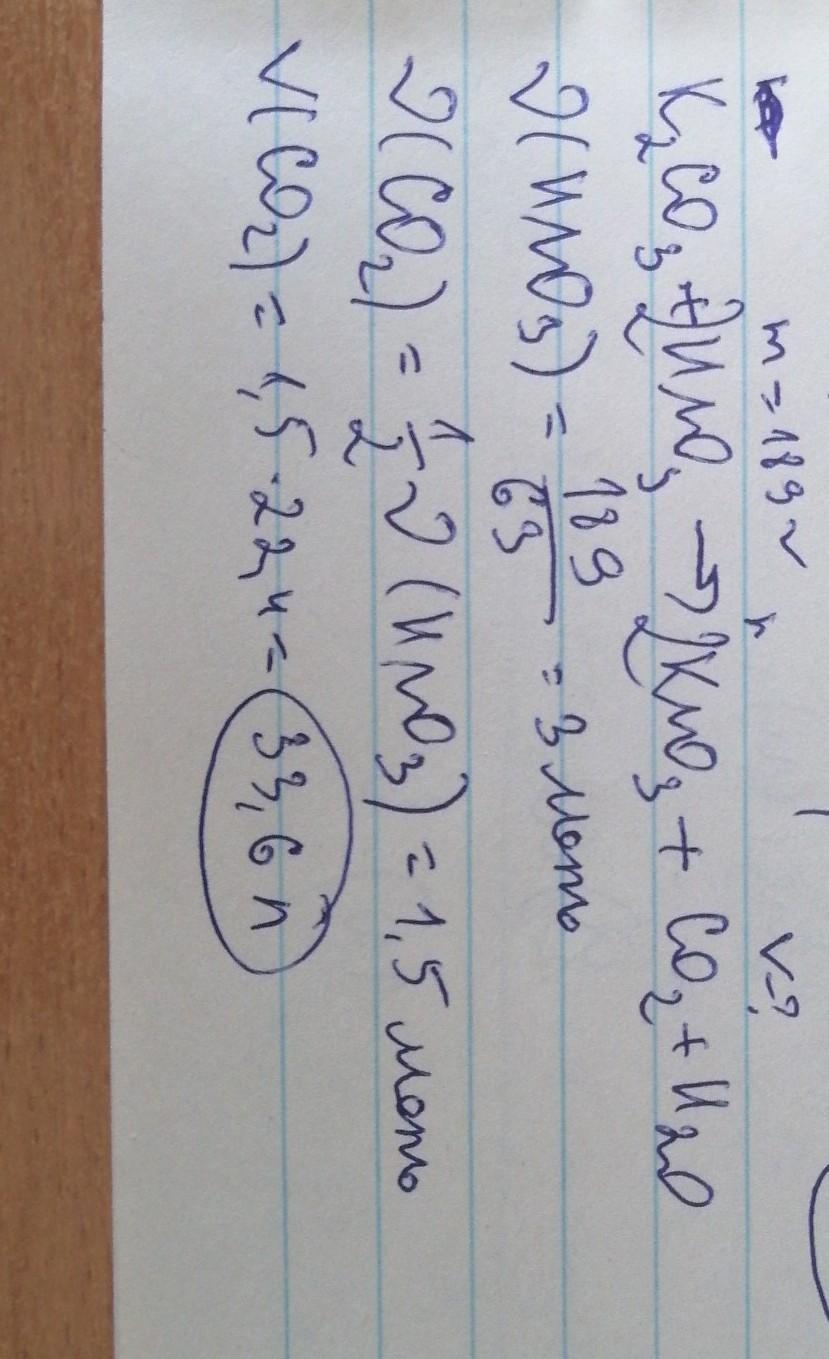 m = 189 г V = ?
K₂CO₃ + 2HNO₃ → 2KNO₃ + CO₂ + H₂O
ν(HNO₃) = 189/63 = 3 моль
ν(CO₂) = 1/2 ν(HNO₃) = 1,5 моль
V(CO₂) = 1,5 · 22,4 = 33,6 л